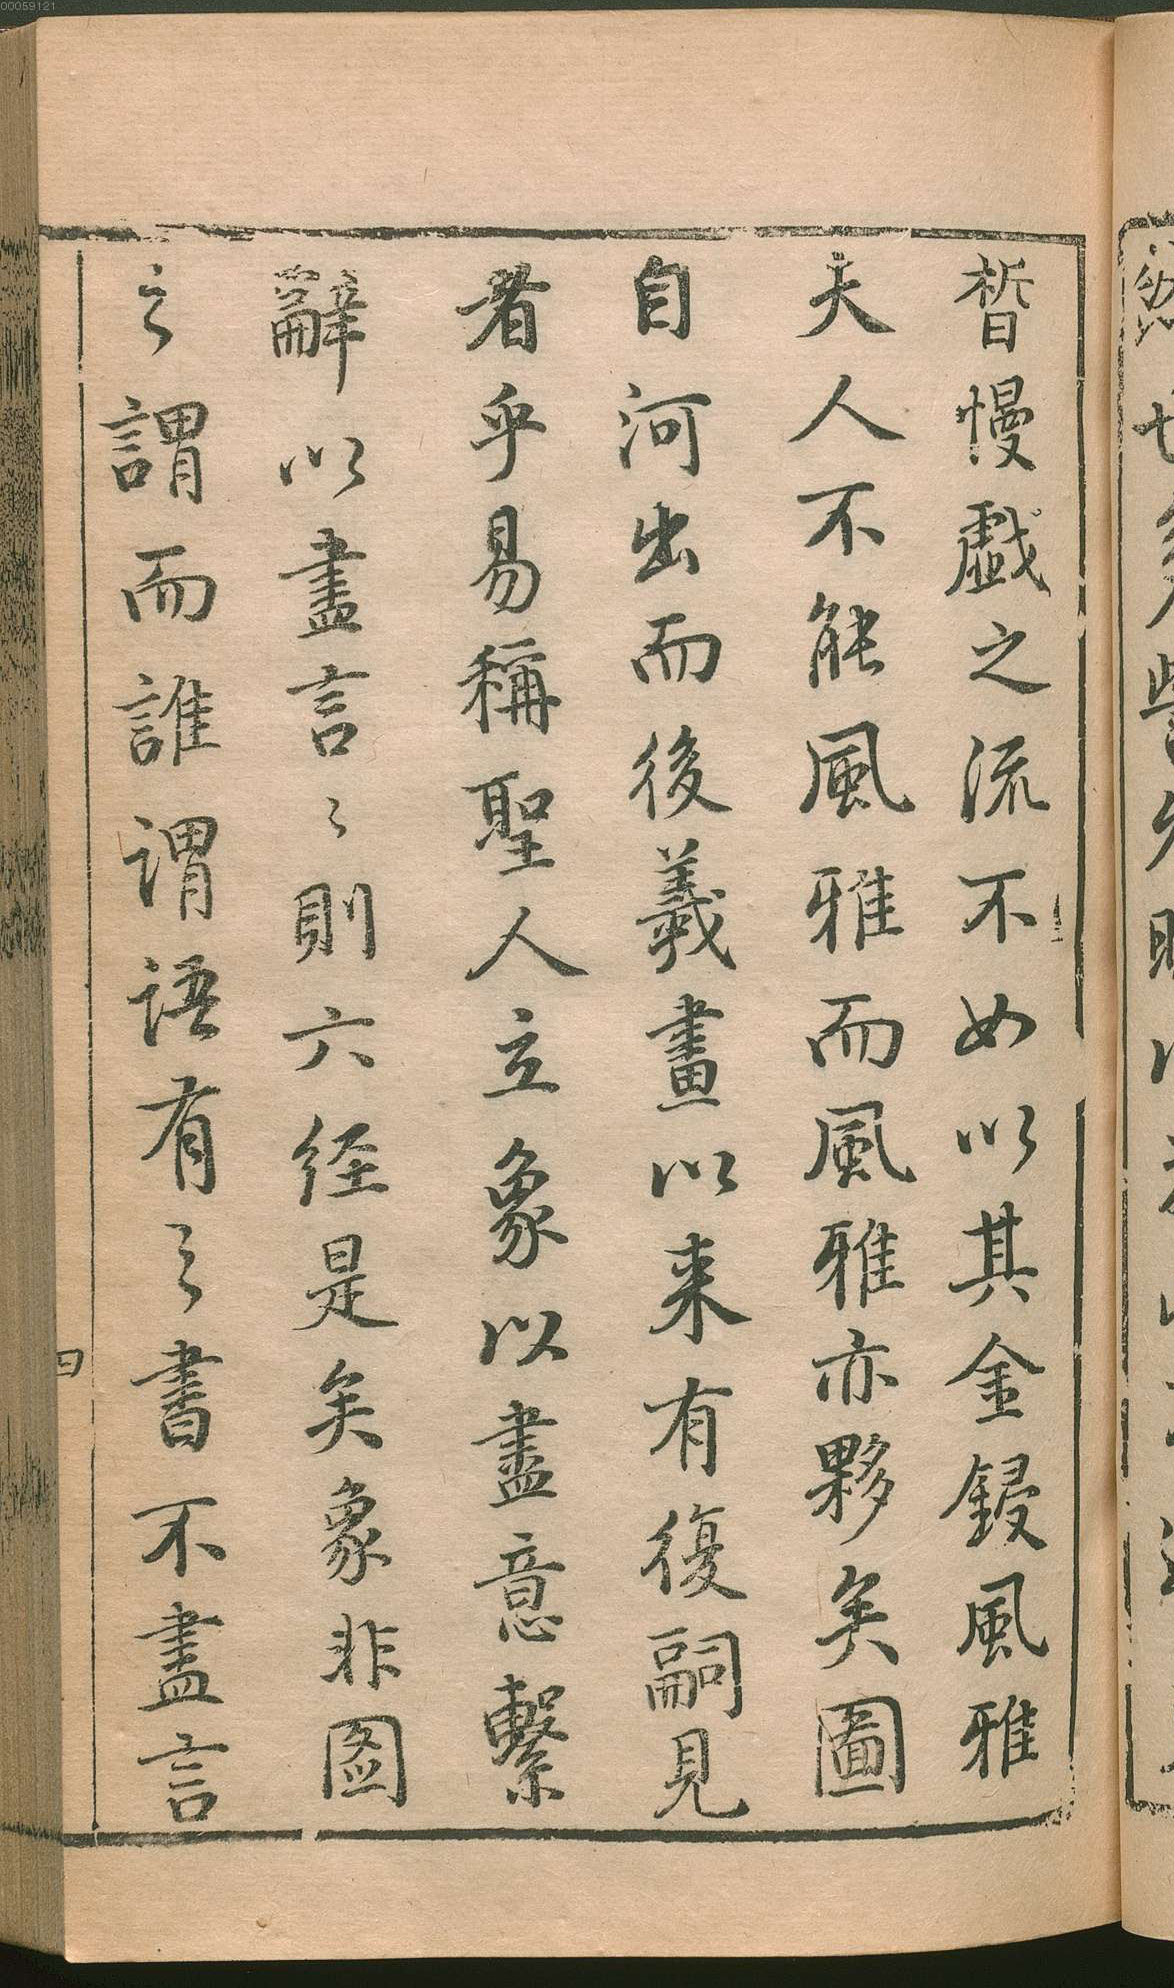 皙慢戲之流不如以其金鋟風雅
夫人不能風雅而風雅亦夥矣圖
自河出而後羲畫以来有復嗣見
者乎易稱聖人立象以盡意繫
辭以盡言〻則六経是矣象非图
之謂而誰谓语有之書不盡言
四
00059121